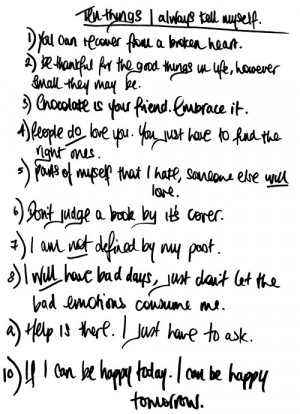 Ten things I always tell myself.
1) You can recover from a broken heart.
2) Be thankful for the good things in life, however
small they may be.
3) Chocolate is your friend. Embrace it.
4) People do love you. You just have to find the
right ones.
5) Parts of myself that I hate, someone else will
love.
6) Don't judge a book by its cover.
7) I am not defined by my past.
8) I will have bad days, just don't let the
bad emotions consume me.
9) Help is there. I just have to ask.
10) If I can be happy today. I can be happy
tomorrow.